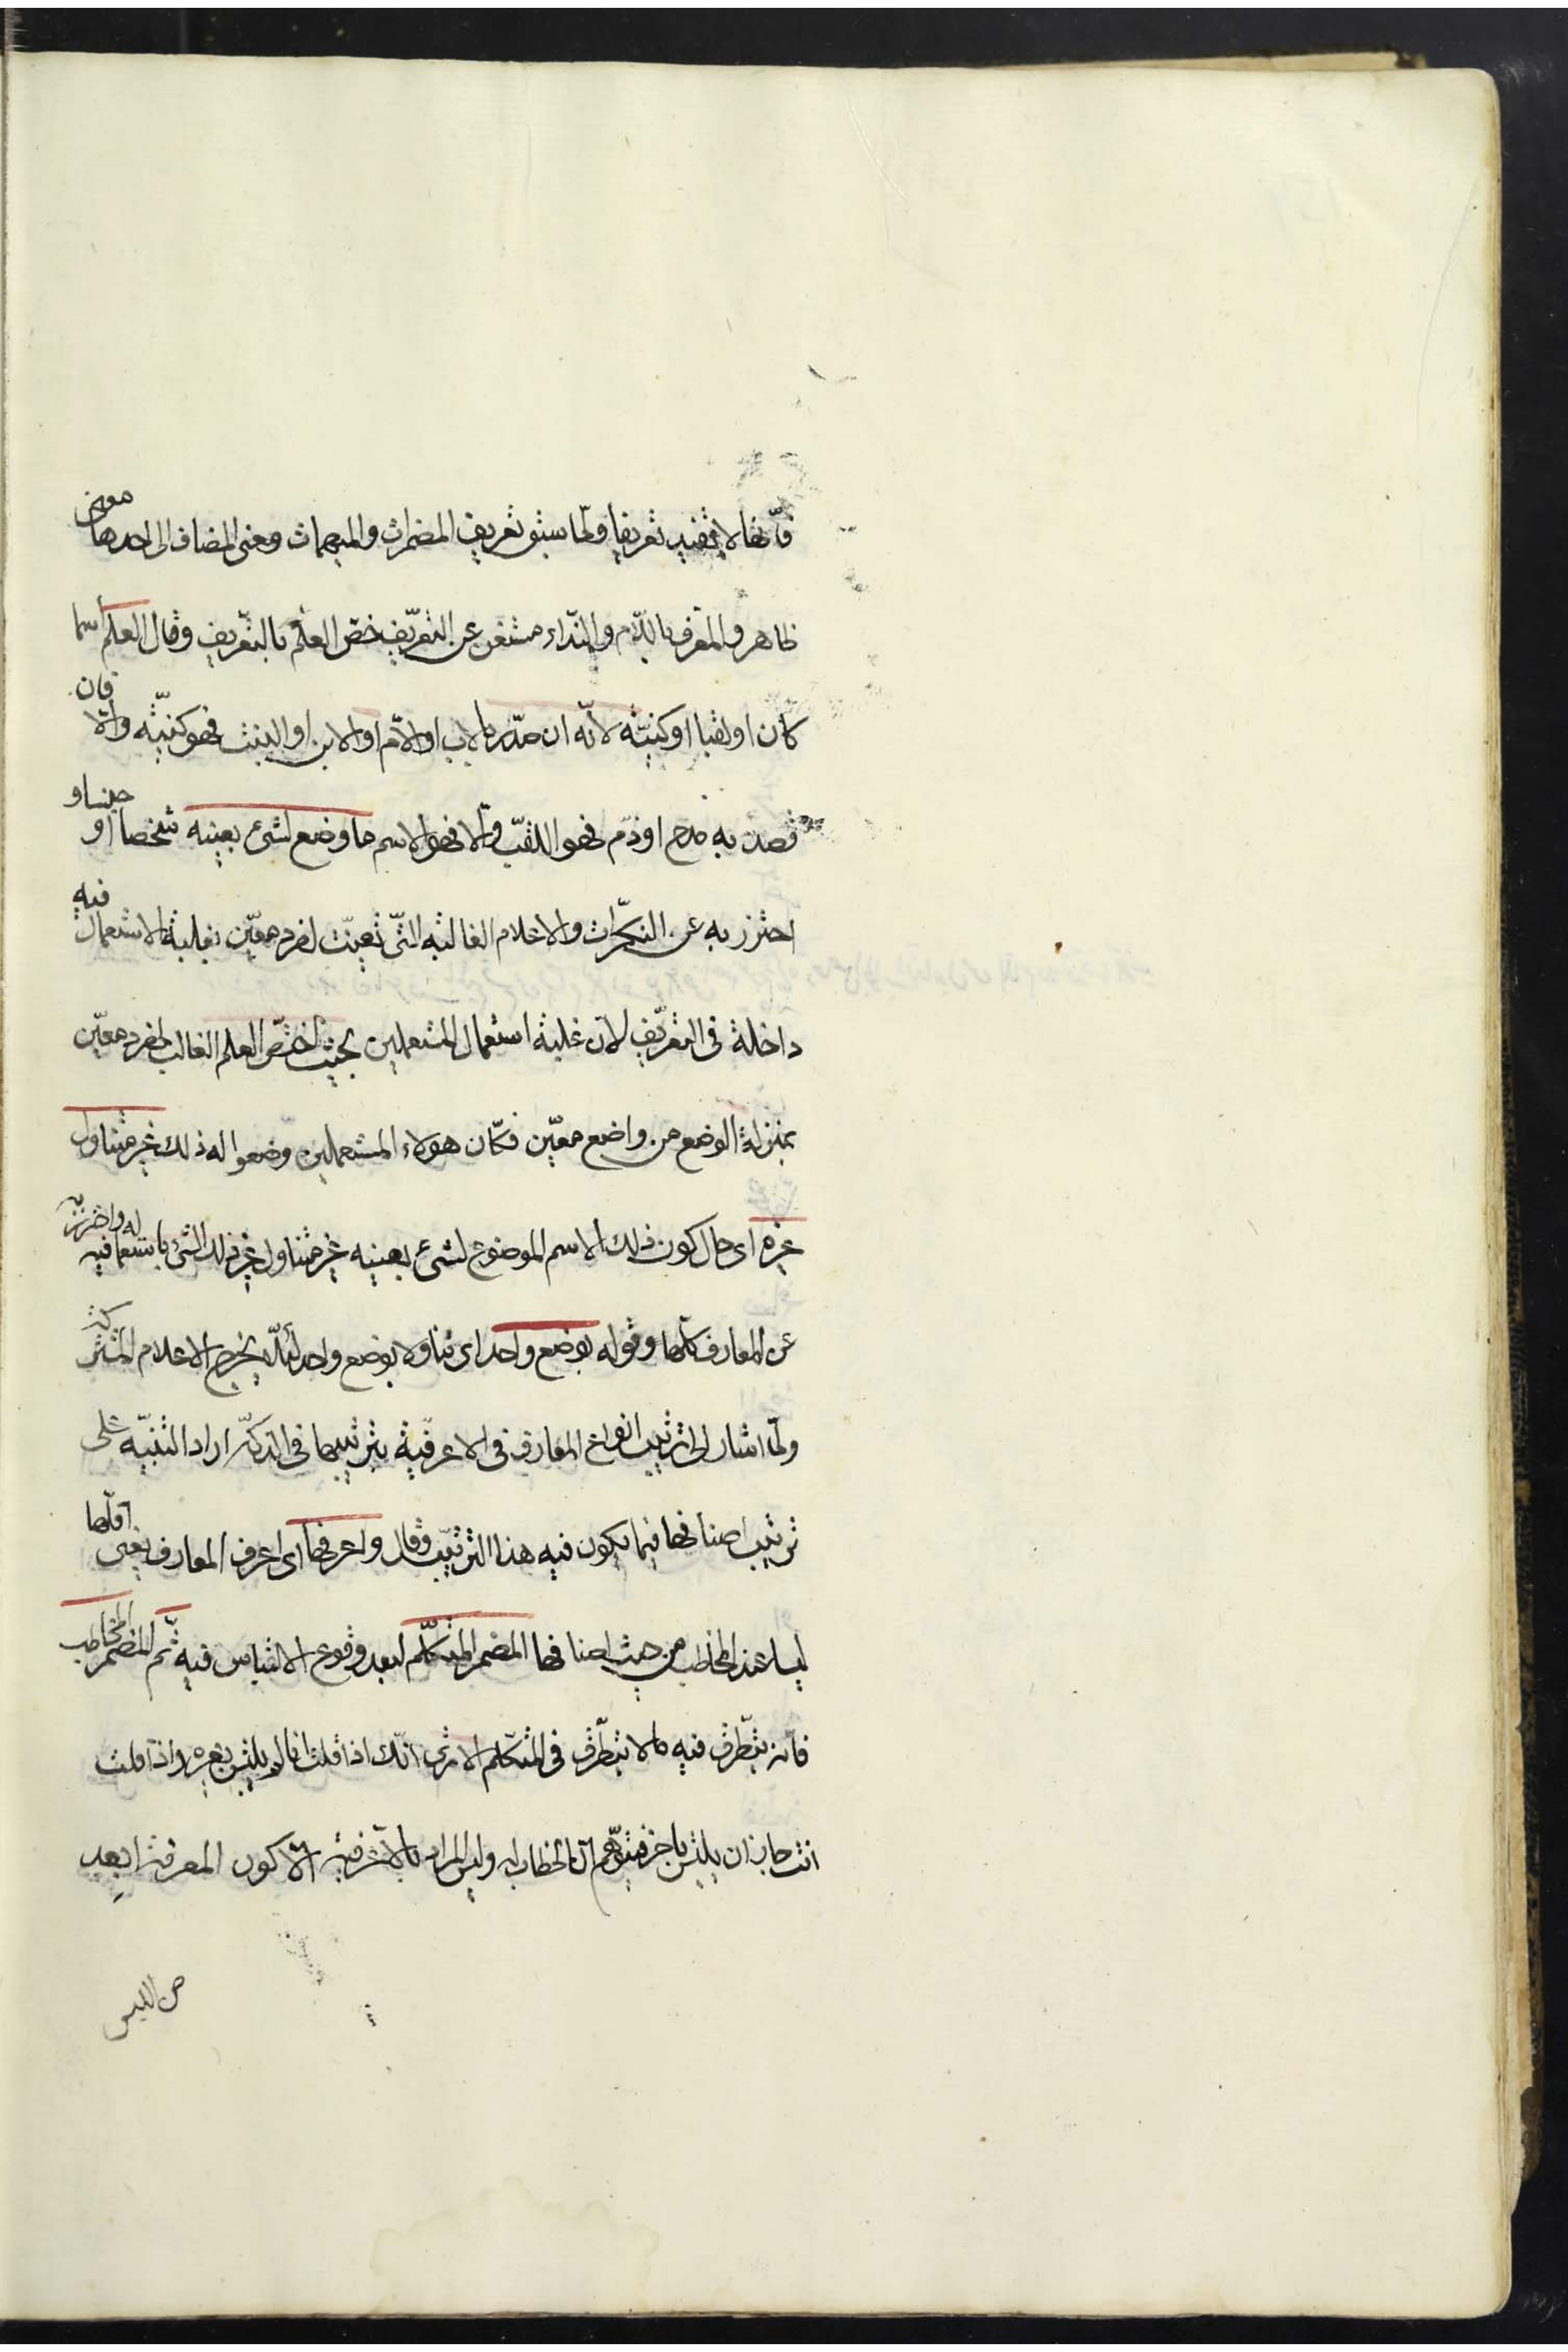 فانّها لا تفيد تعريفا ولمّا سبق تعريف المضمرات والمبهمات ومعنى المضاف الى احدها معنى
ظاهر والمعرف باللام والنداء مستغن عن التعريف خصّ العلم بالتعريف وقال العلم اسما
كان او لقبا او كنيته لانّه ان صدّر بالاب او الامّ او الابن او البنت فهو كنيته والّا فان
قصد به مدح او ذم فهو اللقب والّا فهو الاسم ما وضع لشئ بعينه شخصا او جنسا و
احترز به عن النكرات والاعلام الغالبه التّى تعينت لفرد معيّن بغلبة الاستعمال فيه
داخلة فى التعريف لانّ غلبة استعمال المستعملين بحيث اختصّ العلم الغالب لفرد معيّن
بمنزلة الوضع من واضع معيّن فكانّ هولاء المستعملين وضعوا له ذلك غير متناول
غيره اى حال كون ذلك الاسم الموضوع لشئ بعينه غير متناول غير ذلك الشئ باستعما له فيه واحترز به
عن المعارف كلّها وقوله بوضع واحد اى تناولا بوضع واحد لئلّا يخرج الاعلام المشتركة
ولمّا اشار الى ترتيب انواع المعارف فى الاعرفية بترتيبها فى الذكر اراد التنبيه على
ترتيب اصنافها فيما يكون فيه هذا الترتيب وقال واعرفها اى اعرف المعارف يعنى اقلّها
لبسا عند المخاطب من حيث اصنافها المضمر المتكلّم لبعد وقوع الالتباس فيه ثم المضمر المخاطب
فانه يتطرق فيه ما لا يتطرّق فى المتكلم الا ترى انّك اذا قلت انا لم يلتبس بغيره واذا قلت
انت جاز ان يلتبس باخر فيتوهم انّ الخطاب له وليس المراد بالاعرفيه الّا كون المعرفة ابعد
من اللبس